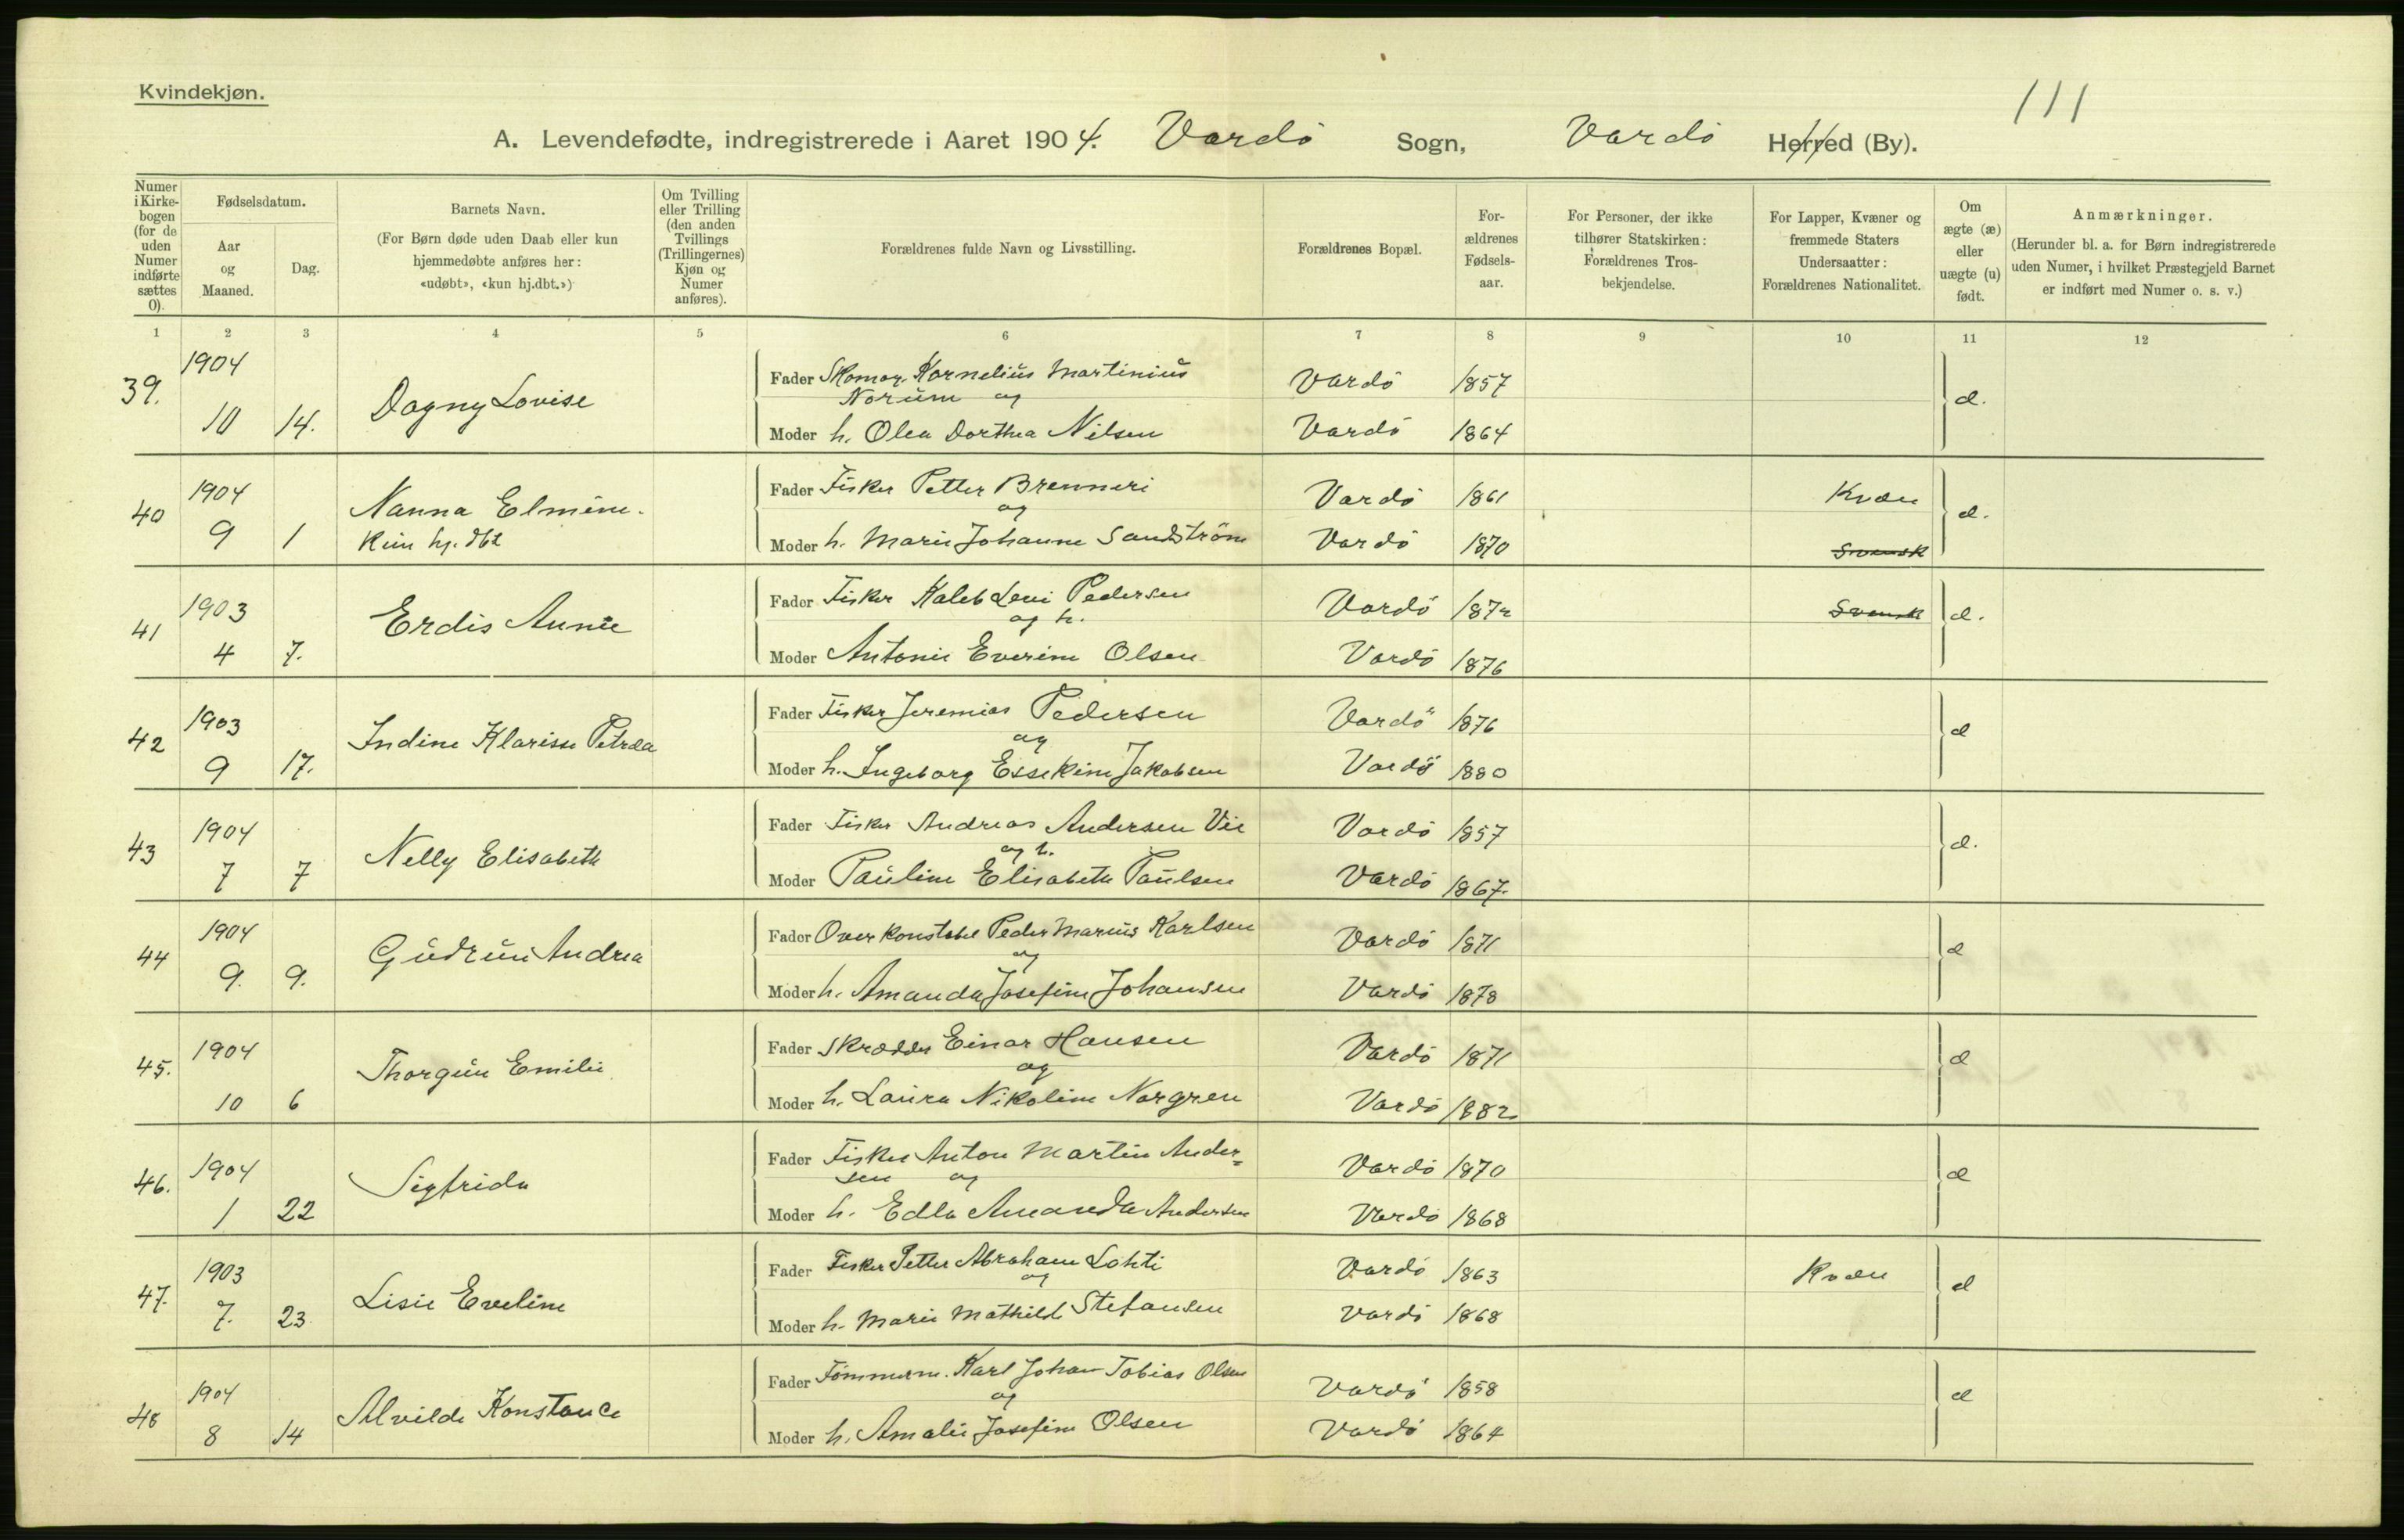 Kvindekjøn.
111
A. Levendefødte, indregistrerede i Aaret 1904. Vardö Sogn, Vardö Herred (By).
Numer i Kirkebogen (for de uden Numer indførte sættes 0).
Fødselsdatum.
Aar og Maaned.
Dag.
Barnets Navn.
(For Børn døde uden Daab eller kun hjemmedøbte anføres her: «udøbt», «kun hj.dbt.»)
Om Tvilling eller Trilling (den anden Tvillings (Trillingernes) Kjøn og Numer anføres).
Forældrenes fulde Navn og Livsstilling.
Forældrenes Bopæl.
Forældrenes Fødselsaar.
For Personer, der ikke tilhører Statskirken: Forældrenes Trosbekjendelse.
For Lapper, Kvæner og fremmede Staters Undersaatter: Forældrenes Nationalitet.
Om ægte (æ) eller uægte (u) født.
Anmærkninger.
(Herunder bl. a. for Børn indregistrerede uden Numer, i hvilket Præstegjeld Barnet er indført med Numer o. s. v.)
1 2 3 4 5 6 7 8 9 10 11 12
39. 1904 Fader Skomag. Kornelius Martinius Vardö 1857 æ.
Norum og
10 14. Dagny Lovise Moder h. Olea Dorthea Nilsen Vardö 1864
40 1904 Nanna Elmine. Fader Fisker Petter Brenneri Vardö 1861 Kvæn æ.
og
9 1 Kun hj. dbt Moder h. Marie Johanne Sandström Vardö 1870 Svensk
41 1903 Erdis Annie Fader Fisker Kaleb Levi Pedersen Vardö 1872 Svensk æ.
og h.
4 7. Moder Antonie Everine Olsen Vardö 1876
42 1903 Indine Klarisse Petrea Fader Fisker Jeremias Pedersen Vardö 1876 æ
og
9 17. Moder h. Ingeborg Essekine Jakobsen Vardö 1880
43 1904 Nelly Elisabeth Fader Fisker Andreas Andersen Vie Vardö 1857 æ.
og h.
7 7 Moder Pauline Elisabeth Paulsen Vardö 1867.
44 1904 Gudrun Andrea Fader Overkonstabel Peder Marius Karlsen Vardö 1871 æ
og
9. 9. Moder h. Amanda Josefine Johansen Vardö 1878
45. 1904 Thorgun Emilie Fader Skrædder Einar Hansen Vardö 1871 æ
og
10 6 Moder h. Laura Nikoline Norgren Vardö 1882
46. 1904 Sigfrida Fader Fisker Anton Martin Ander= Vardö 1870 æ
sen og
1 22 Moder h. Edla Amanda Andersen Vardö 1868
47. 1903 Lisie Eveline Fader Fisker Petter Abraham Lohti Vardö 1863 Kvæn æ
og
7. 23. Moder h. Marie Mathilde Stefansen Vardö 1868
48 1904 Alvilde Konstance Fader Tömmerm. Karl Johan Tobias Olsen Vardö 1858 æ
og
8 14 Moder h. Amalie Josefine Olsen Vardö 1864